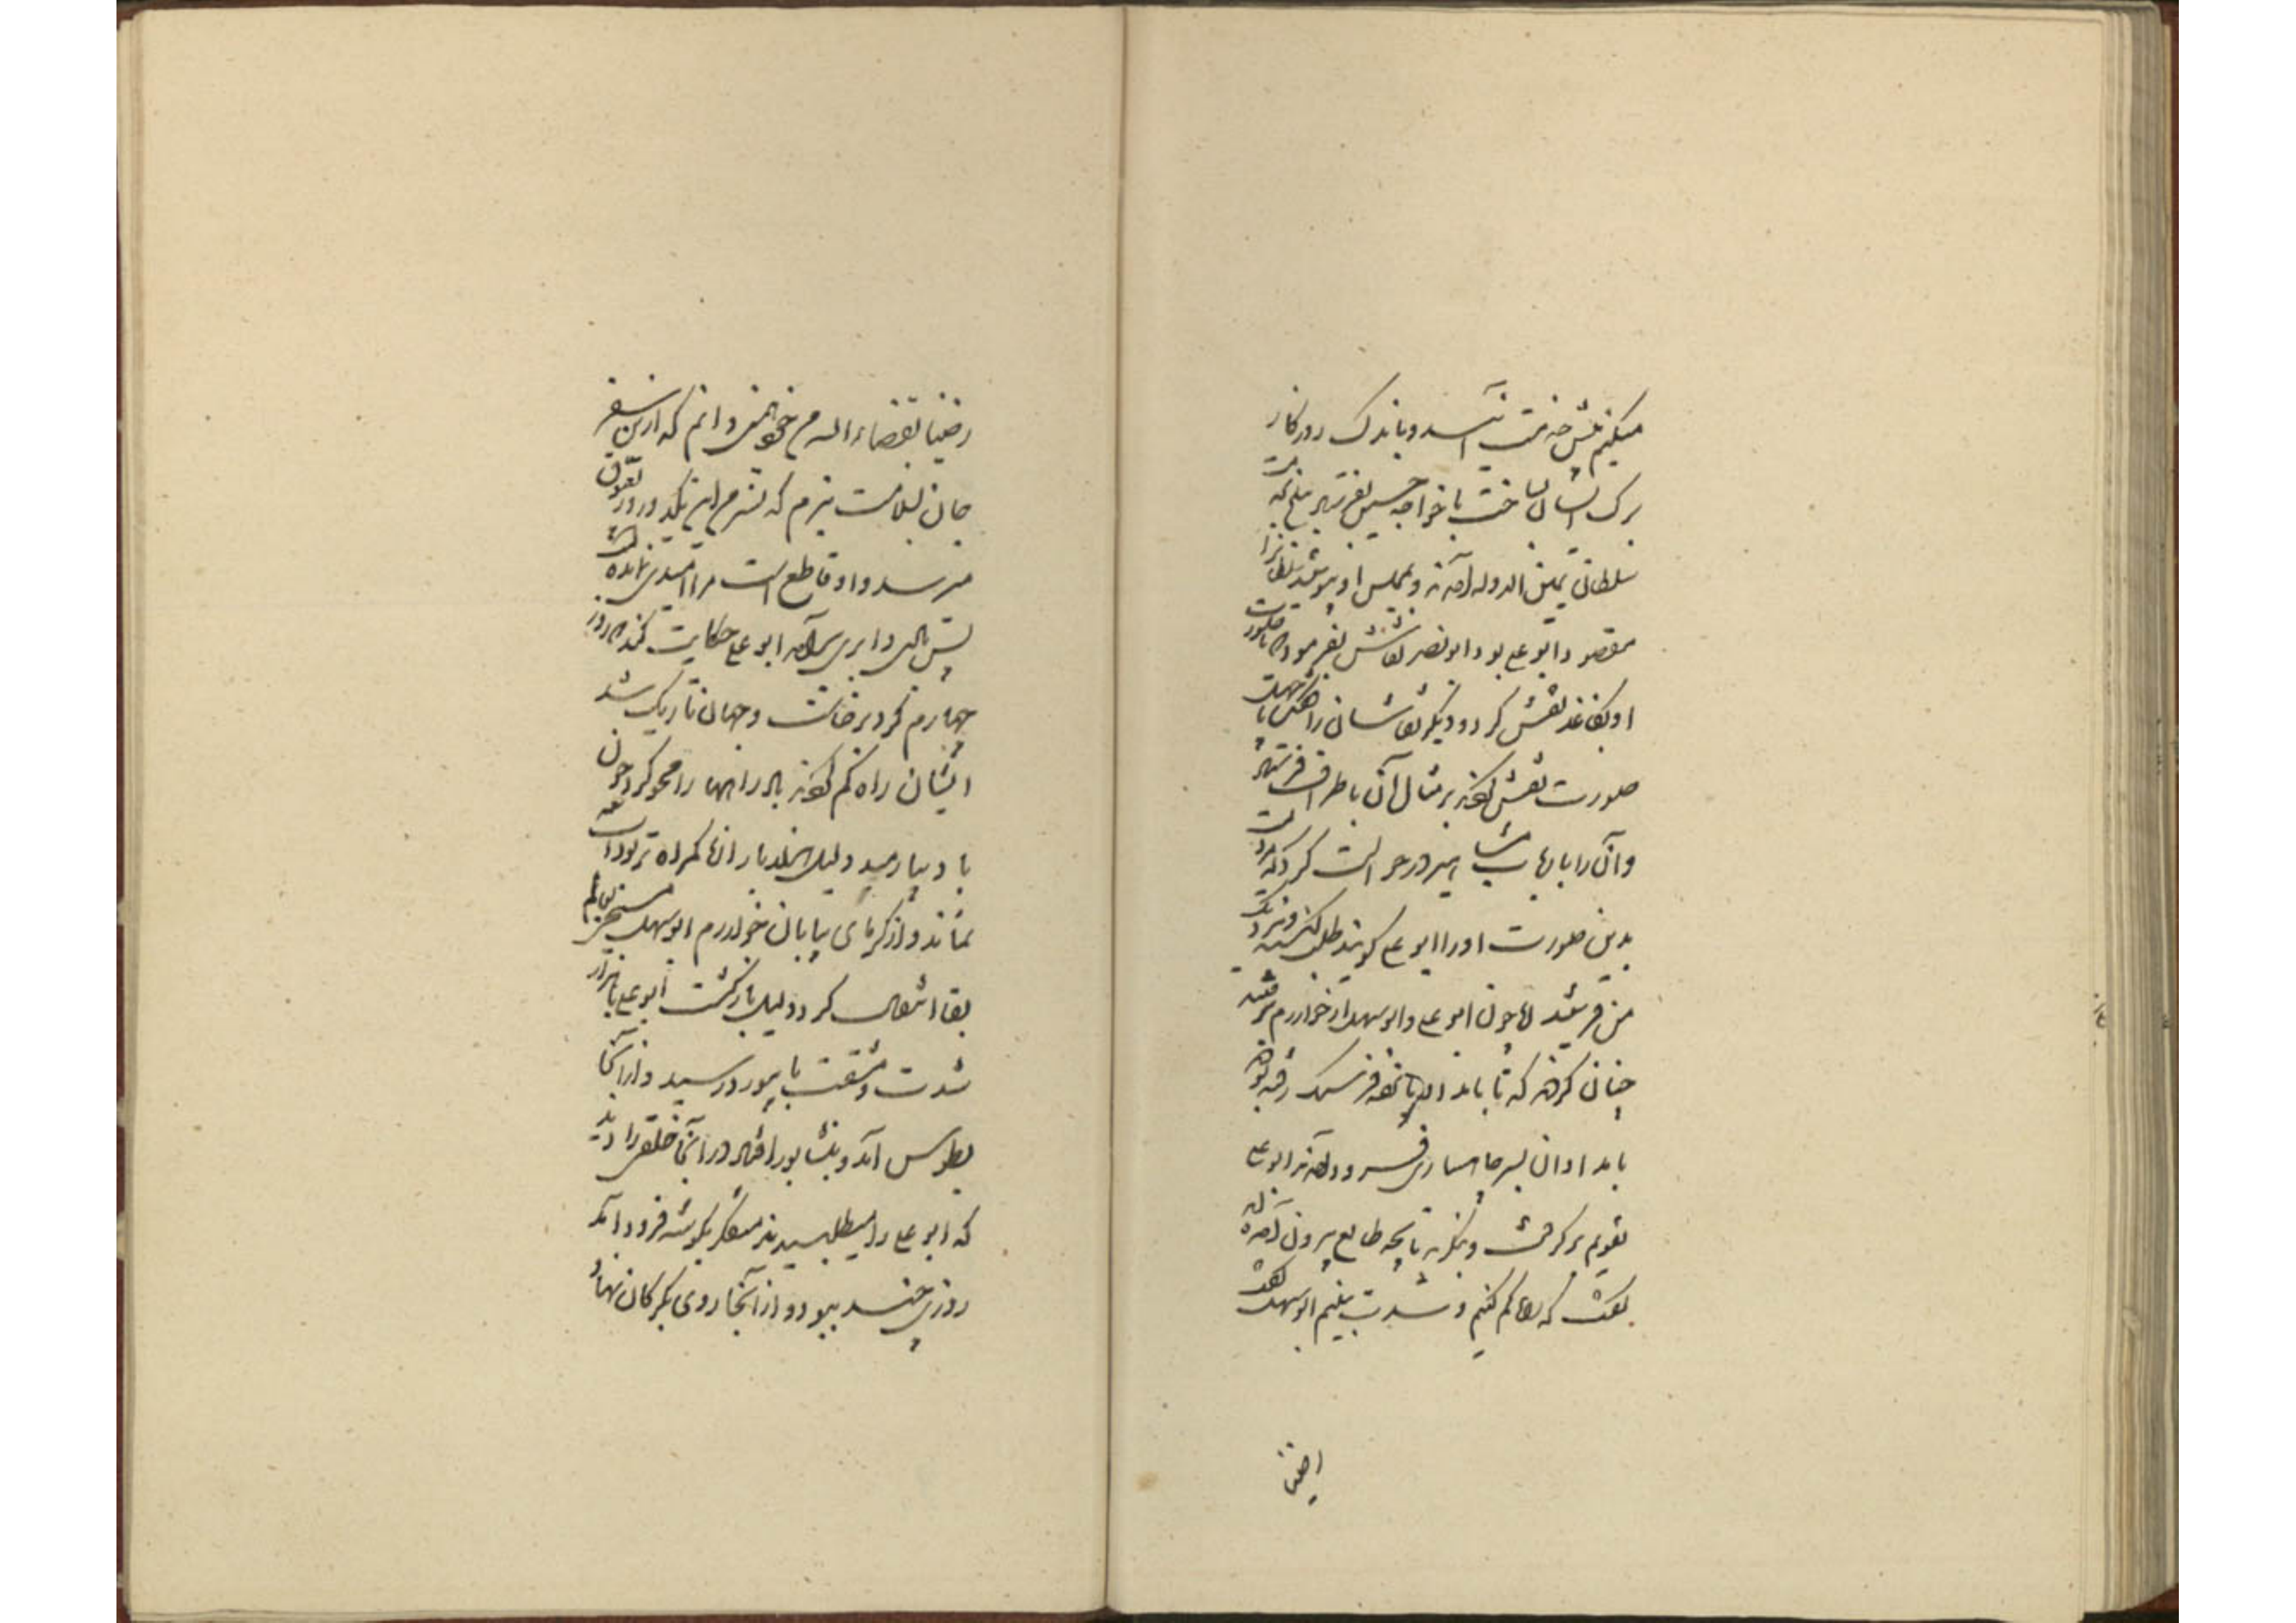 میکنیم پیش خدمت آئید و باندک روزکار
برک ایشان بساخت با خواجه حسین بفرستاد ببلخ بخدمت
سلطان یمین الدوله آمدند و بمجلس او پیوستند سلطانرا
مقصود ابو علی بود ابو نصر نقاش بفرمود تا صورت
او بکاغذ نقش کرد و دیکر نقاشان را تا چهل
صورت نقش کردند بر مثال آن باطراف فرستاد
و آن را باربابها درخواست کرد که مردیست
بدین صورت او را ابو علی کویند طلب کنید و نزدیک
من فرستید اما چون ابو علی و ابو سهل از خوارزم برفتند
چنان کردند که تا بامداد پانزده فرسنک رفته بودند
بامدادان بسر چاهساری رسیدند ابو علی
تقویم برکرفت و بنکرید تا بچه طالع بیرون آمده اند
بکفت که راه کم کنیم و شدت بینیم ابو سهل کفت
رضینا
رضینا بقضاء الله من خود همی دانم که ازین سفر
جان بسلامت نبرم که تسییر من این یکدو روز بعیوق
میرسد و او قاطع است مرا امیدی نمانده است
پس ابو علی حکایت کند که روز
چهارم کرد برخاست و جهان تاریک شد
ایشان راه کم کردند باد راهها را محو کرد چون
باد بیارمید دلیل از ایشان کمراه تر بود آب
نماند و از کرمای بیابان خوارزم ابو سهل مسیحی بعالم
بقا انتقال کرد و دلیل بازکشت ابو علی با هزار
شدت و مشقت با بیورد رسید و از آنجا
بطوس آمد و بنشابور افتاد در آنجا خلقی را دید
که ابو علی را میطلبیدند متفکر بکوشه فرود آمد
روزی چند ببود و از آنجا روی بکرکان نهاد